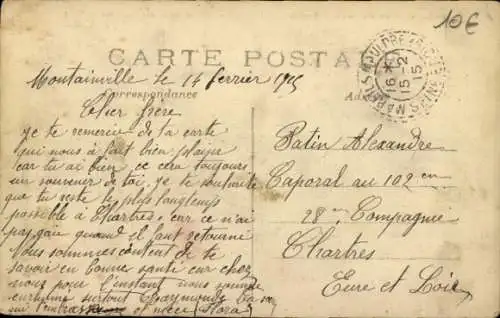 10€
CARTE POSTALE
MAREIL-S-MAULDRE SEINE-ET-OISE
16 *
15-2
15
Montainville le 14 février 1915
Correspondance
Cher frère
je te remercie de la carte
qui nous à fait bien plaisir
car tu ai bien ce cera toujours
un souvenir de toi, je te souhaite
que tu reste le plus longtemps
possible a Chartres, car ce n'ai
pas gaie quand il faut retourné
Nous sommes content de te
savoir en bonne santé car chez
nous pour l'instant nous somme
surtout Raymonde
qui t'embrasse et nièce Flora
Patin Alexandre
Caporal au 102 em
28 em Compagnie
Chartres
Eure et Loir